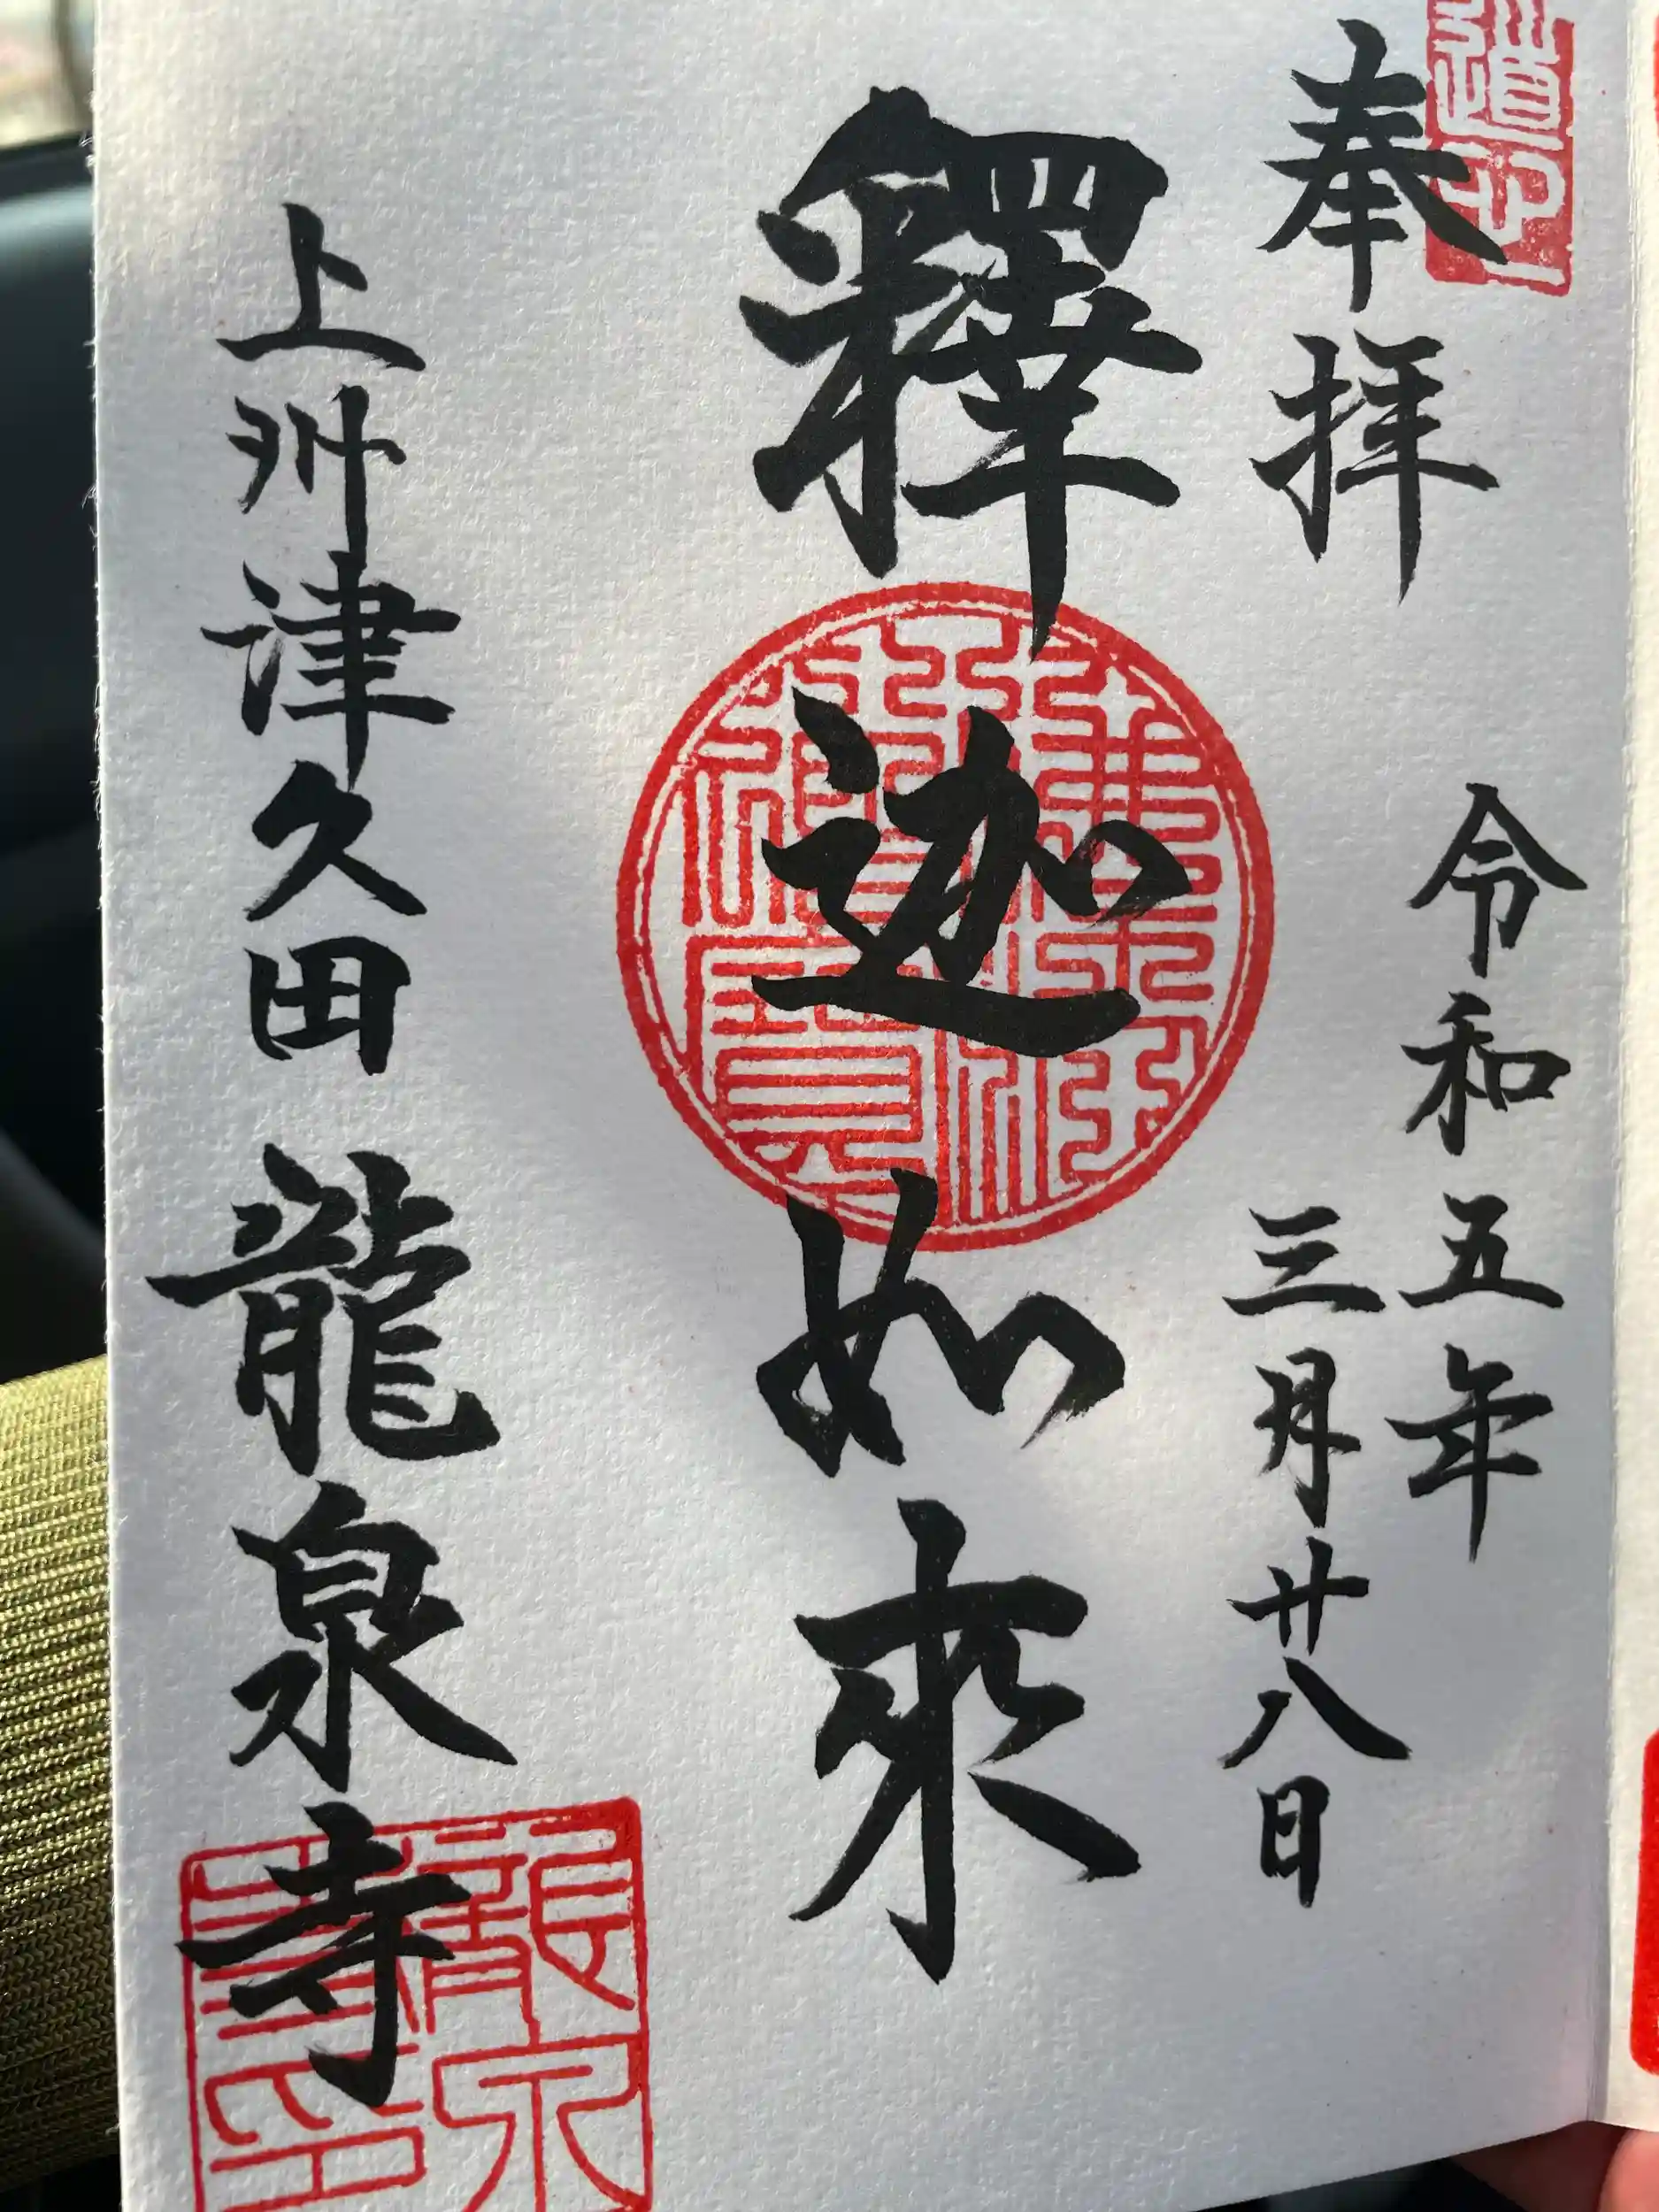 奉拝
令和五年
三月廿八日
釋迦如来
上州津久田 龍泉寺
龍泉
寺印